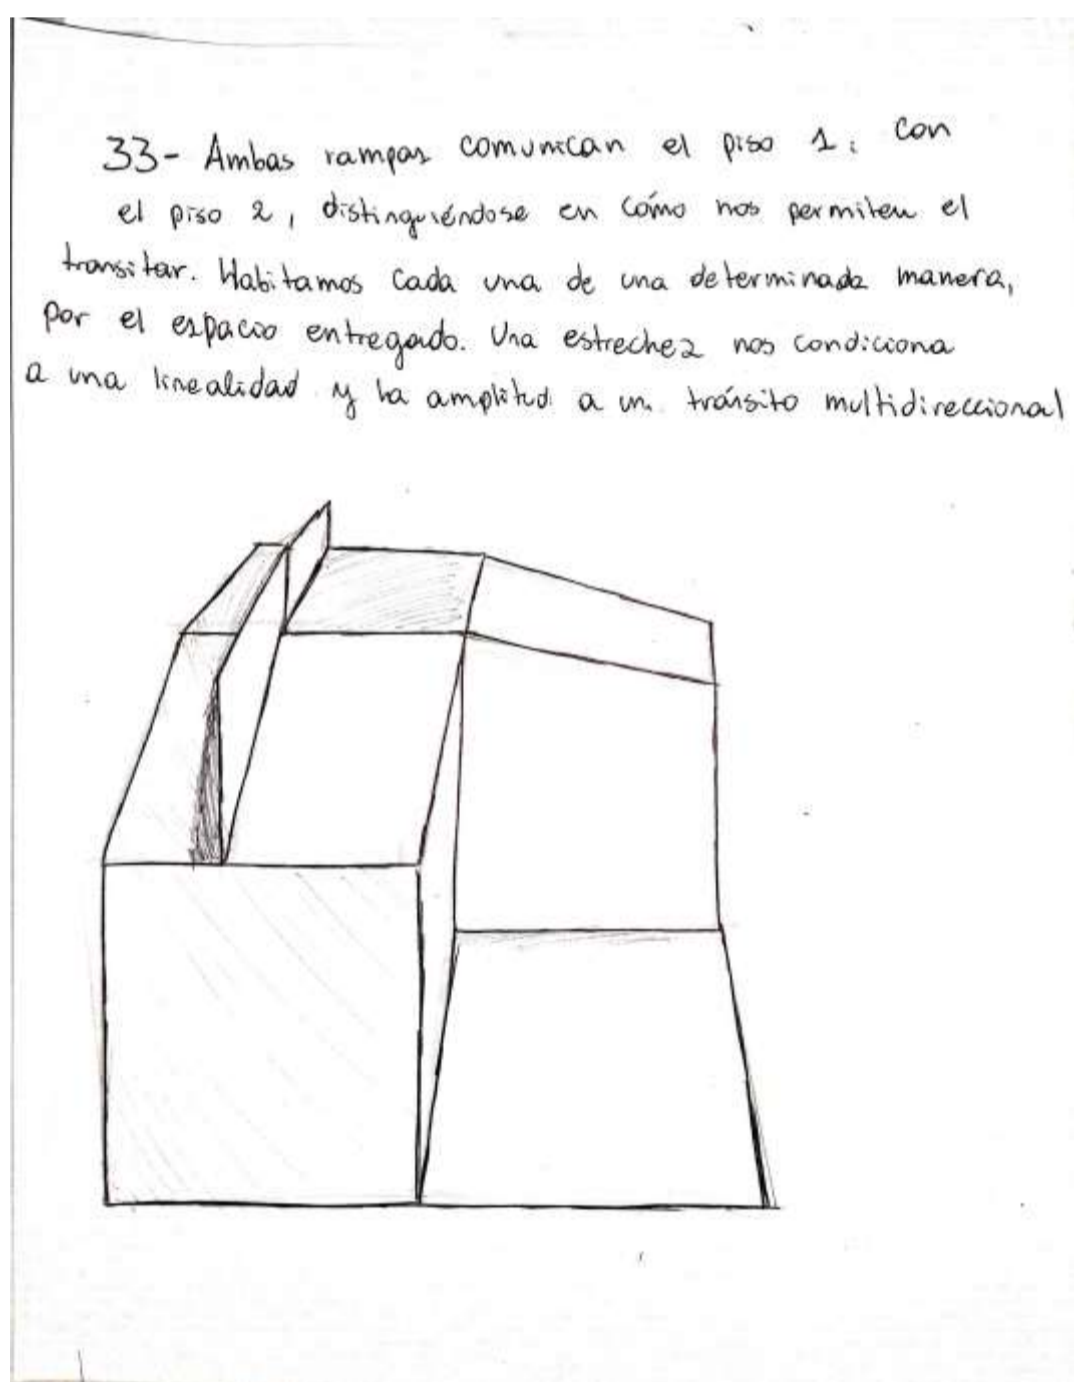 33- Ambas rampas comunican el piso 1. con
el piso 2, distinguiéndose en cómo nos permiten el
transitar. Habitamos cada una de una determinada manera,
por el espacio entregado. Una estrechez nos condiciona
a una linealidad y la amplitud a un tránsito multidireccional